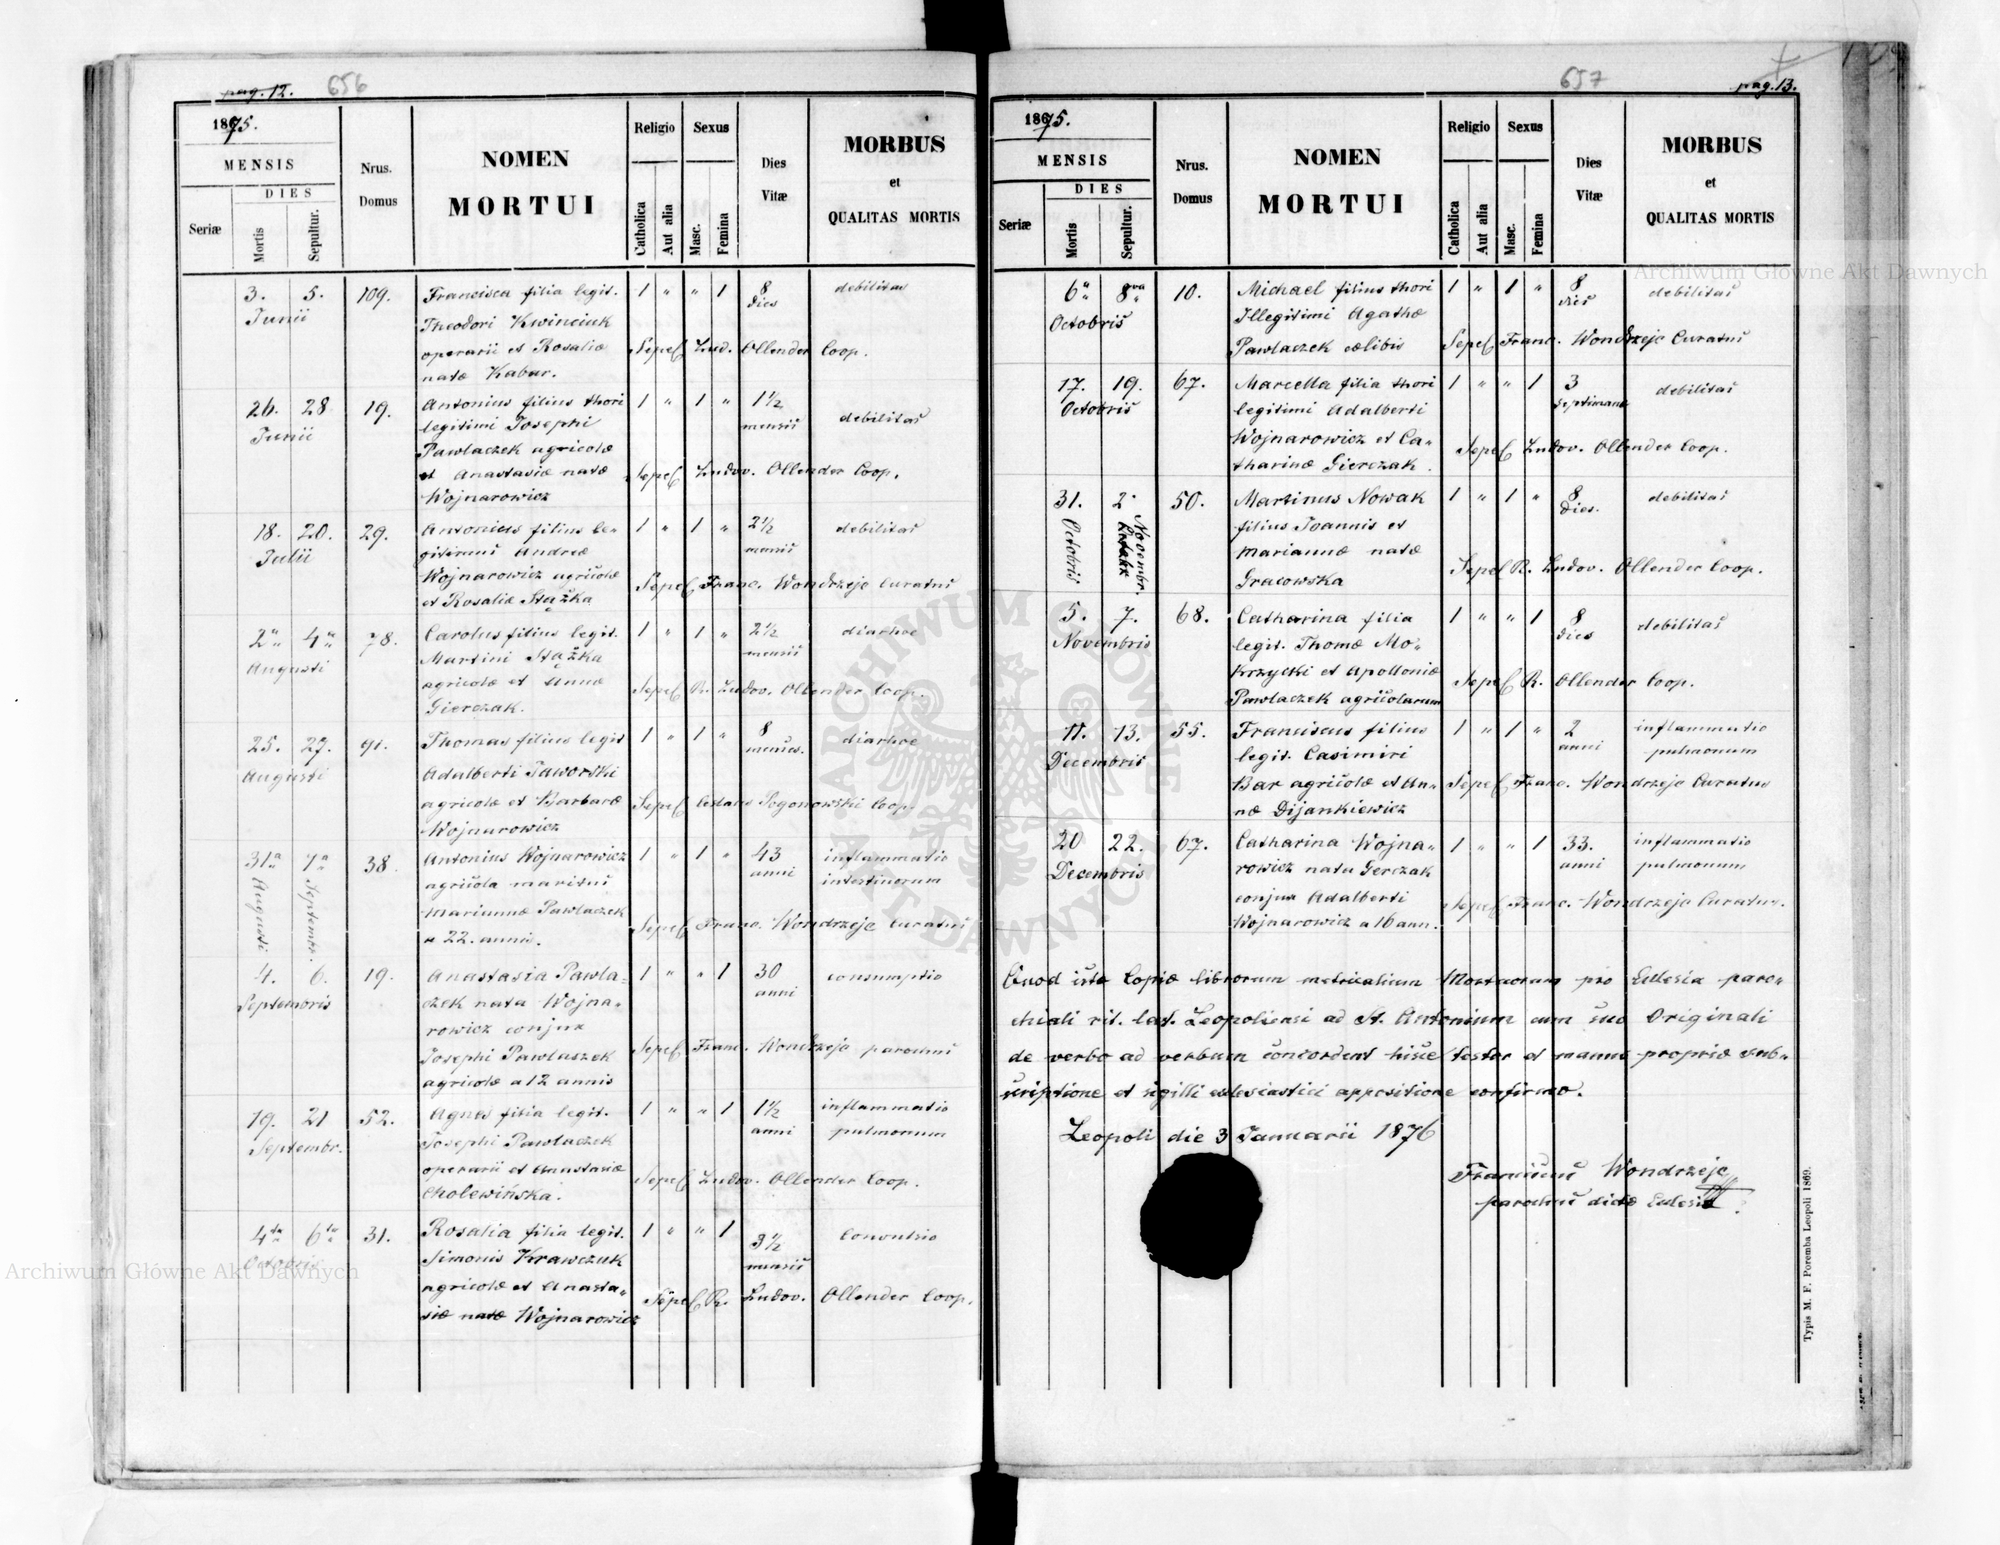 pag. 12. 656
1875.
MENSIS
DIES
Seriæ
Mortis
Sepultur.
Nrus.
Domus
NOMEN
MORTUI
Religio
Catholica
Aut alia
Sexus
Masc.
Femina
Dies
Vitæ
MORBUS
et
QUALITAS MORTIS
3. 5. 109. Francisca filia legit. 1 " " 1 8 debilitas
Junii dies
Theodori Kwinciuk
operarii et Rosaliæ Sepel. Lud. Ollender Coop.
natæ Kabar.
26. 28 19. Antonius filius thori 1 " 1 " 1½
Junii legitimi Josephi mensis debilitas
Pawlaczek agricolæ
et Anastasiæ natæ Sepel. Ludov. Ollender Coop.
Wojnarowicz
18. 20. 29. Antonius filius le- 1 " 1 " 2½ debilitas
Julii gitimus Andreæ mensis
Wojnarowicz agricolæ Sepel. Franc. Wondrzejc Curatus
et Rosaliæ Stążka
2a 4a 78. Carolus filius legit. 1 " 1 " 2½ diarhoe
Augusti Martini Stążka mensis
agricolæ et Annæ Sepel. R. Ludov. Ollender Coop.
Gierczak.
25. 27. 91. Thomas filius legit 1 " 1 " 8 diarhoe
Augusti Adalberti Jaworski
agricolæ et Barbaræ Sepel. Pogonowski Coop.
Wojnarowicz
31a 7a 38. Antonius Wojnarowicz 1 " 1 " 43 inflammatio
Augusti Septembr. agricola maritus anni intestinorum
Mariannæ Pawlaczek Sepel. Franc. Wondrzejc Curatus
a 22. annis.
4. 6. 19. Anastasia Pawla- 1 " " 1 30 consumptio
Septembris czek nata Wojna- anni
rowicz conjux
Josephi Pawlaczek Sepel. Franc. Wondrzejc parochus
agricolæ a 12 annis
19. 21 52. Agnes filia legit. 1 " " 1 1½ inflammatio
Septembr. Josephi Pawlaczek anni pulmonum
operarii et Anastasiæ Sepel. Ludov. Ollender Coop.
Cholewińska.
4ta 6ta 31. Rosalia filia legit. 1 " " 1 3½
Octobris Simonis Krawczuk mensis
agricolæ et Anasta- Sepel. R. Ludov. Ollender Coop.
siæ natæ Wojnarowicz
657 pag. 13.
1875.
MENSIS
DIES
Seriæ
Mortis
Sepultur.
Nrus.
Domus
NOMEN
MORTUI
Religio
Catholica
Aut alia
Sexus
Masc.
Femina
Dies
Vitæ
MORBUS
et
QUALITAS MORTIS
6a 8va 10. Michael filius thori 1 " 1 " 8 debilitas
Octobris Illegitimi Agathæ dies
Pawlaczek cælibis Sepel. Franc. Wondrzejc Curatus
17. 19. 67. Marcella filia thori 1 " " 1 3 debilitas
Octobris legitimi Adalberti septimanæ
Wojnarowicz et Ca- Sepel. Ludov. Ollender Coop.
tharinæ Gierczak.
31. 2. 50. Martinus Nowak 1 " 1 " 8 debilitas
Octobris Novembr. filius Joannis et dies.
Mariannæ natæ Sepel. R. Ludov. Ollender Coop.
Gracowska
5. 7. 68. Catharina filia 1 " " 1 8 debilitas
Novembris legit. Thomæ Mo- dies
krzycki et Apolloniæ Sepel. R. Ollender Coop.
Pawlaczek agricolarum
11. 13. 55. Franciscus filius 1 " 1 " 2 inflammatio
Decembris legit. Casimiri anni pulmonum
Bar agricolæ et An- Sepel. Franc. Wondrzejc Curatus
næ Dijankiewicz
20 22. 67. Catharina Wojna- 1 " " 1 33. inflammatio
Decembris rowicz nata Gerczak anni pulmonum
conjux Adalberti Sepel. Franc. Wondrzejc Curatus.
Wojnarowicz a 16 ann.
Quod istæ Copiæ librorum metricalium Mortuorum pro Ecclesia paro-
chiali rit. lat. Leopoliensi ad St. Antonium cum suo Originali
de verbo ad verbum concordent hisce testor et manus propriæ sub-
scriptione et sigilli ecclesiastici appositione confirmo.
Leopoli die 3 Januarii 1876
Franciscus Wondrzejc
parochus dictæ Ecclesiæ
Typis M. F. Poremba Leopoli 1869.
Archiwum Główne Akt Dawnych
Archiwum Główne Akt Dawnych
ARCHIWUM GŁÓWNE AKT DAWNYCH